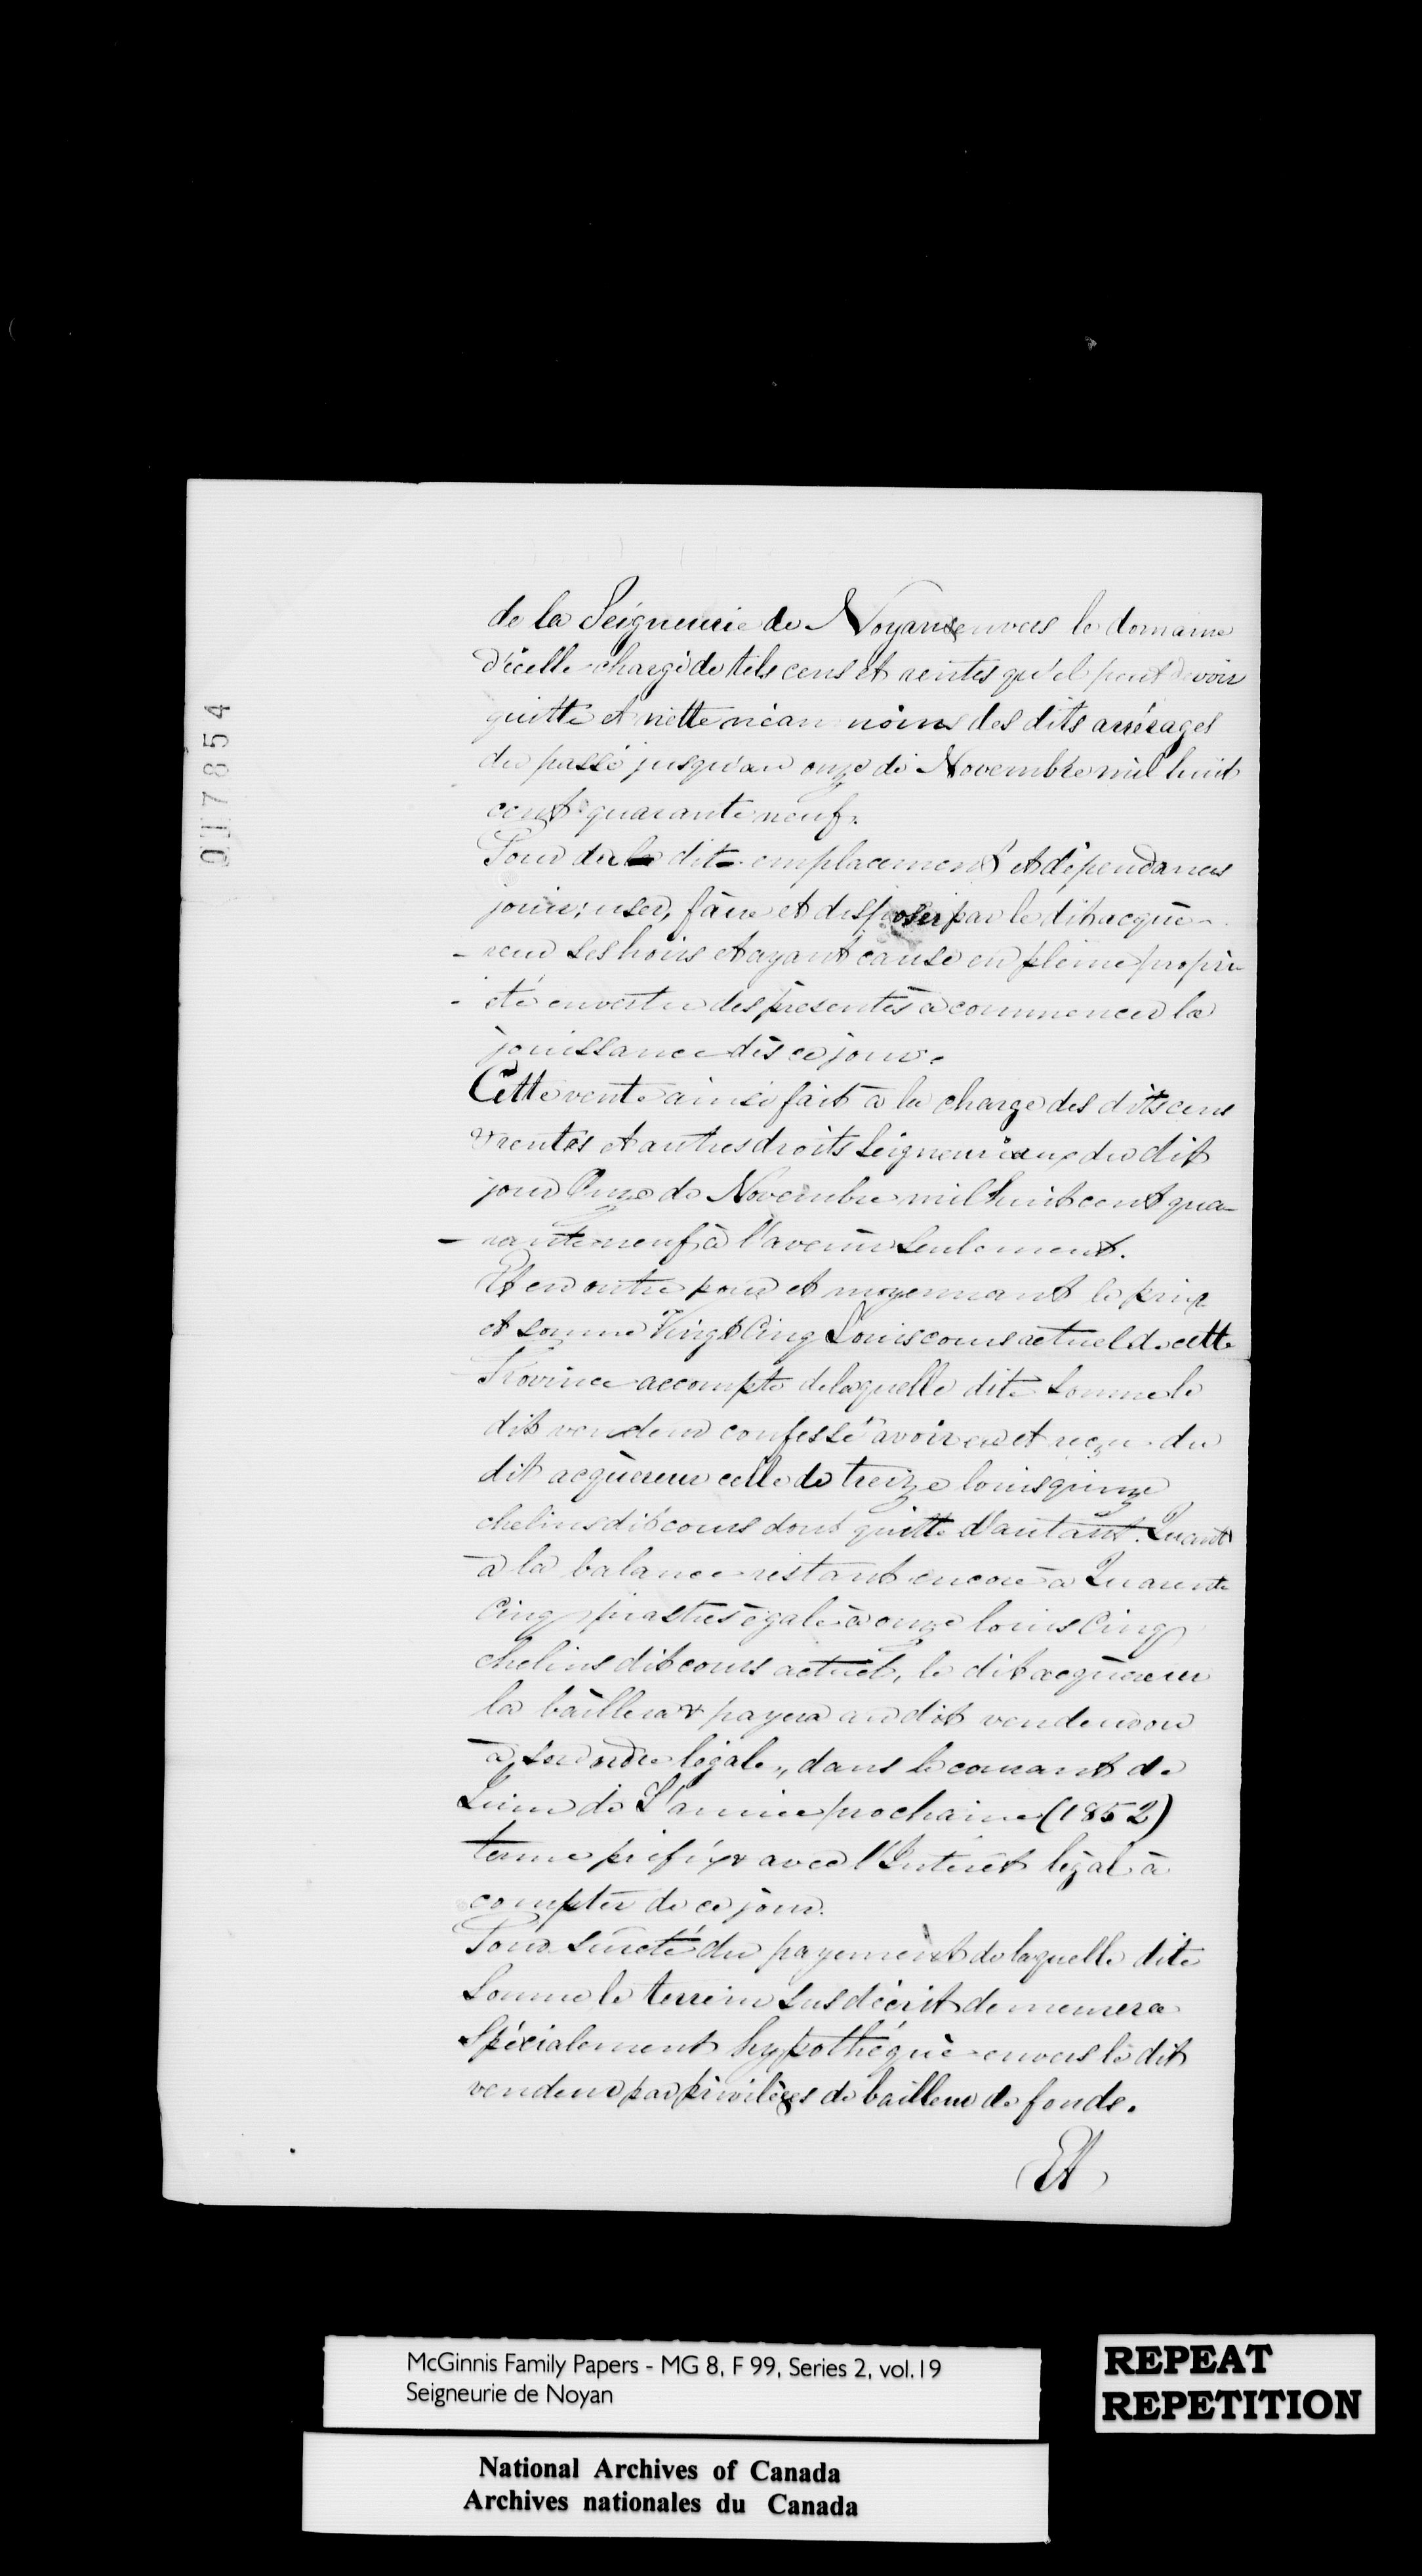 017854
de la Seigneurie de Noyan envers le domaine
d'icelle chargé de tels cens et rentes qu'il peut devoir
quitte et nette néanmoins des dits arrérages
du passé jusqu'au onze de Novembre mil huit
cent quarante neuf.
Pour du dit emplacement et dépendances
jouir, user, faire et disposer par le dit acqué-
-reur ses hoirs et ayant cause en pleine propri
-été en vertu des présentes à commencer la
jouissance dès ce jour.
Cette vente ainsi fait à la charge des dits cens
& rentes et autres droits Seigneuriaux du dit
jour Onze de Novembre mil huit cent qua-
-rante neuf à l'avenir seulement.
Et en outre pour et moyennant le prix
et somme Vingt Cinq Louis cours actuel de cette
Province accompte de laquelle dite somme le
dit vendeur confesse avoir eu et reçu du
dit acquéreur celle de treize louis quinze
chelins dit cours dont quitte d'autant. Quant
à la balance restant encore à Quarante
Cinq piastres égale à onze louis Cinq
chelins dit cours actuel, le dit acquéreur
la baillera & payera au dit vendeur ou
à son ordre légale, dans le courant de
Juin de L'année prochaine (1852)
terme préfix & avec l'Intérêt légal à
compter de ce jour.
Pour sûreté du payement de laquelle dite
Somme le terrein sus décrit demeurera
Spécialement hypothéqué envers le dit
vendeur par privilèges de bailleur de fonds.
Et
McGinnis Family Papers - MG 8, F 99, Series 2, vol.19
Seigneurie de Noyan
REPEAT
REPETITION
National Archives of Canada
Archives nationales du Canada